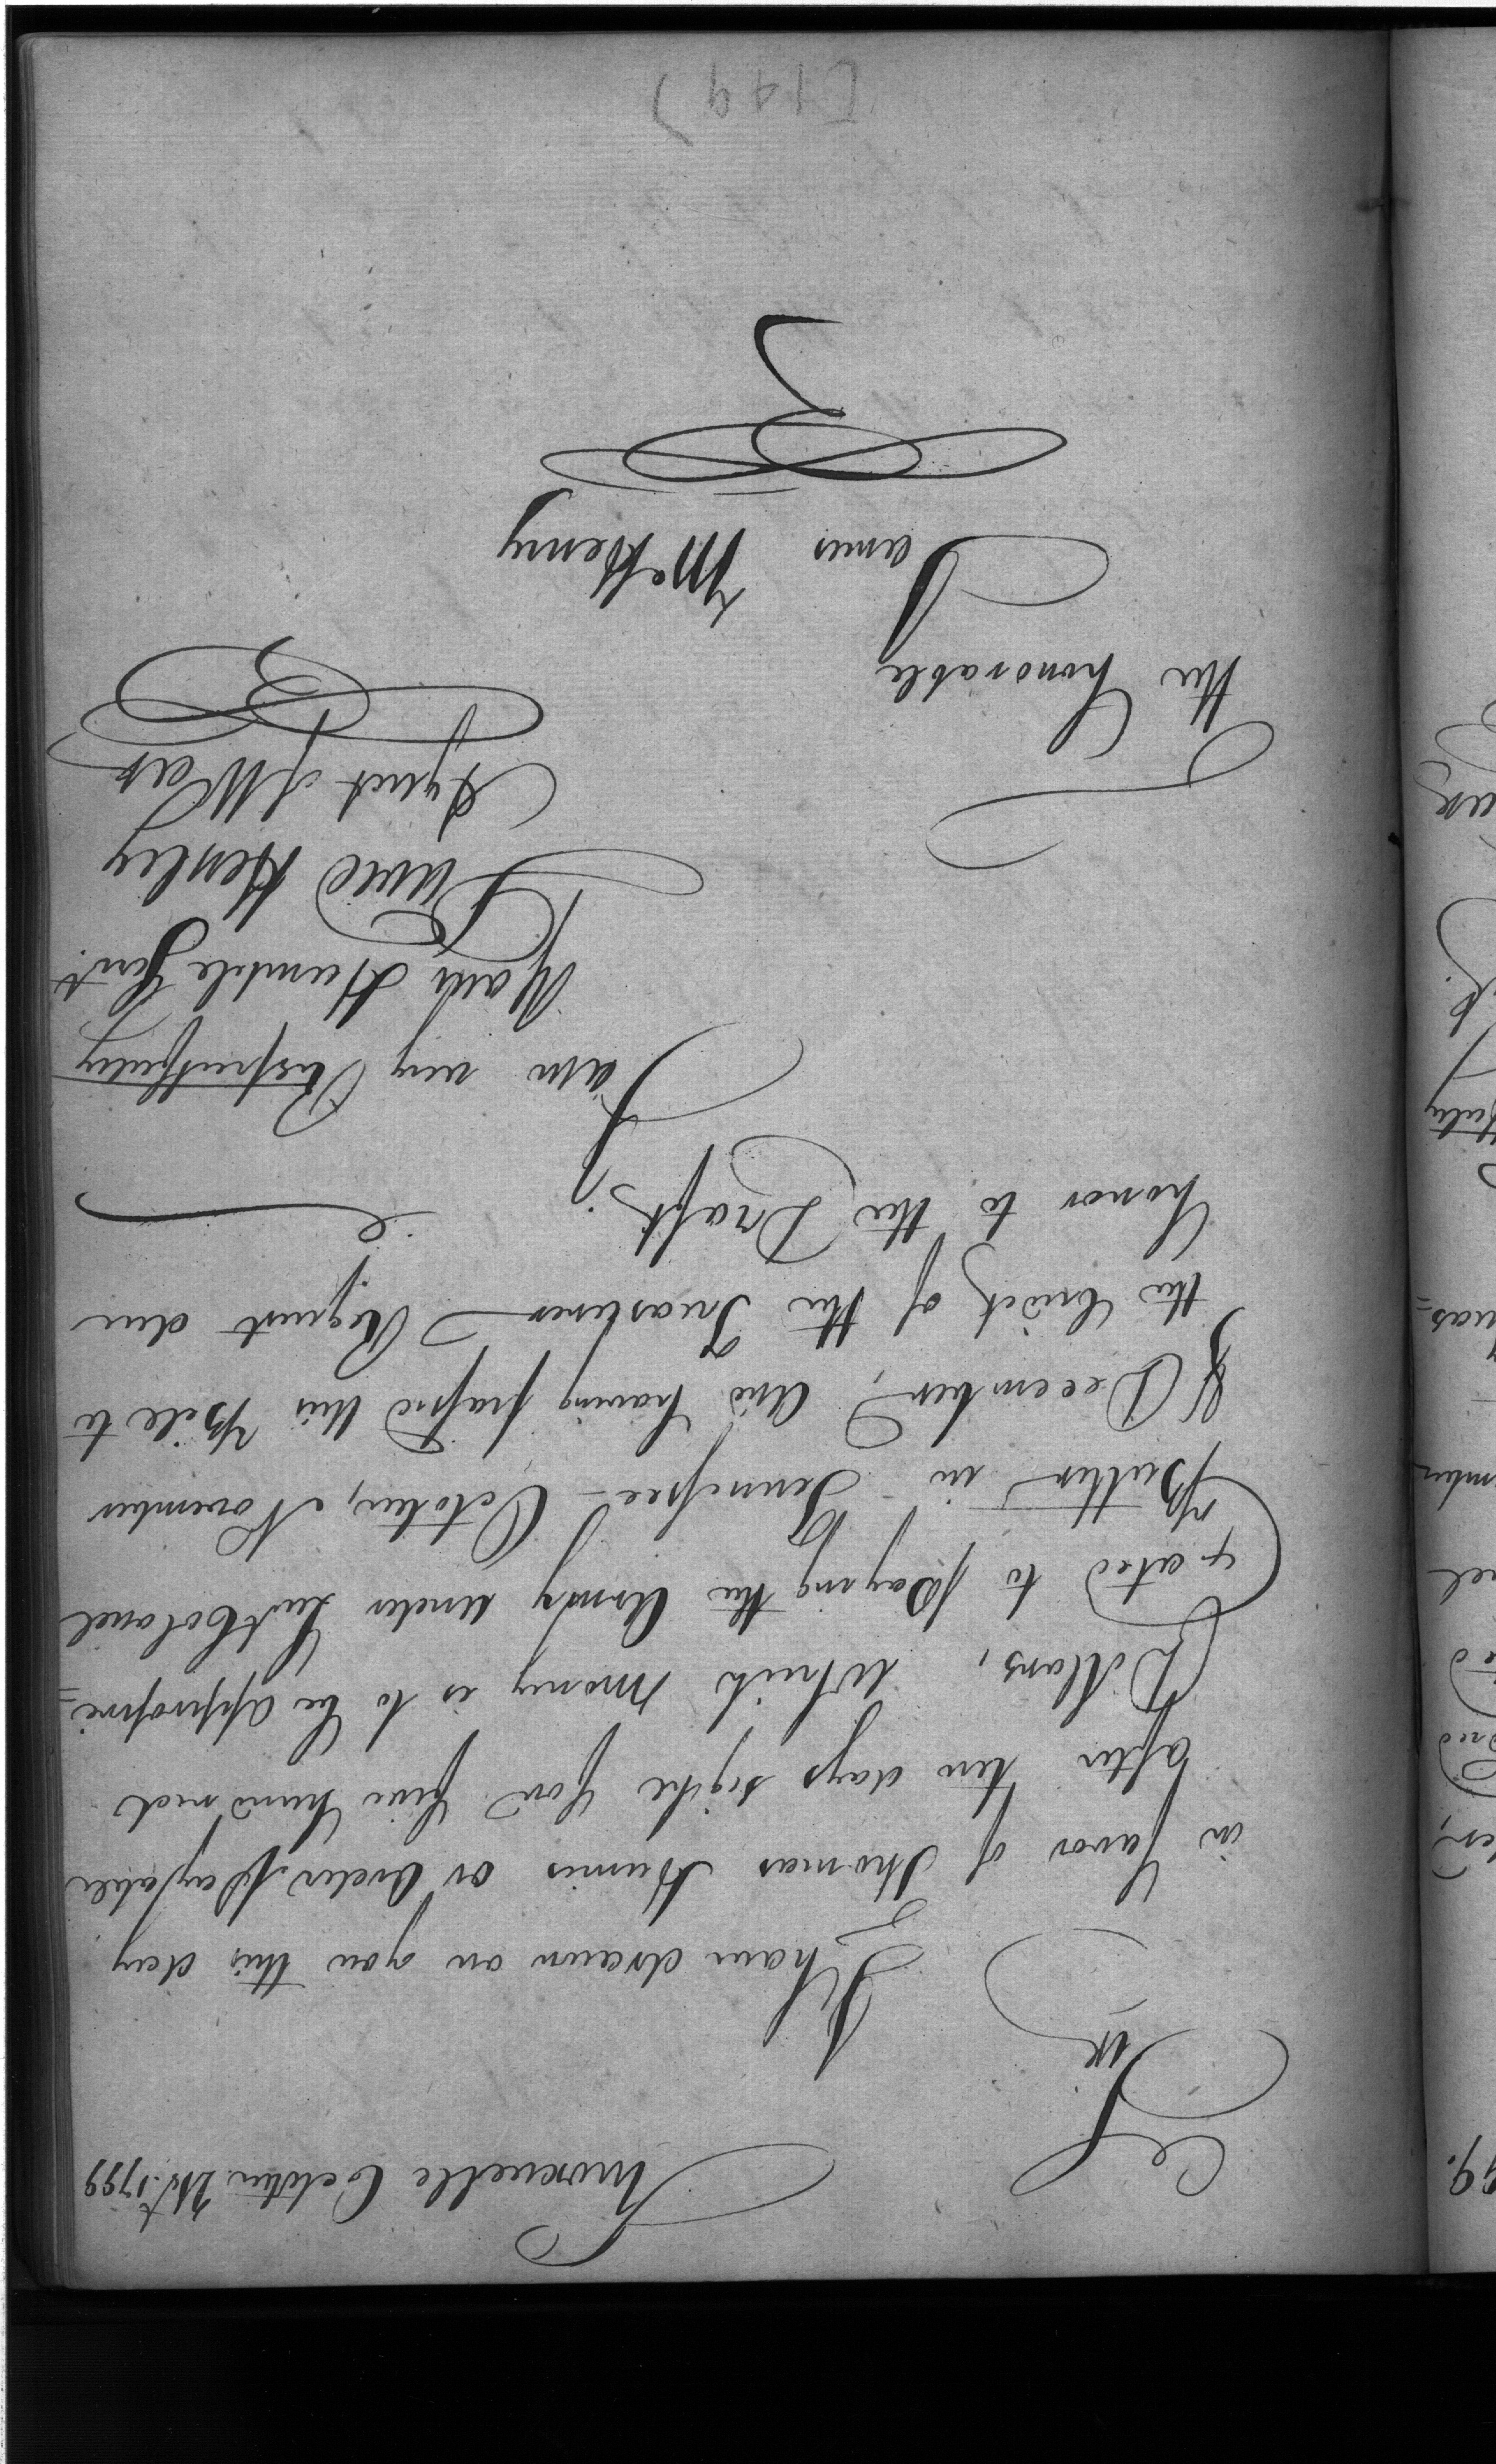 Knoxville October 21st. 1799
Sir
I have drawn on you this day
in favor of Thomas Humes or Order Payable
after ten days sight for five hundred
Dollars, which money is to be appropri=
ated to paying the Army under Lieut Colonel
Butler in Tennessee – October, November
& December, and having passed this Bill to
the Credit of the Treasurer – Request due
honor to the Draft.
I am very Respectfully
Your Humble Servt.
David Henley
Agent of War
The Honorable
James McHenry
[149]